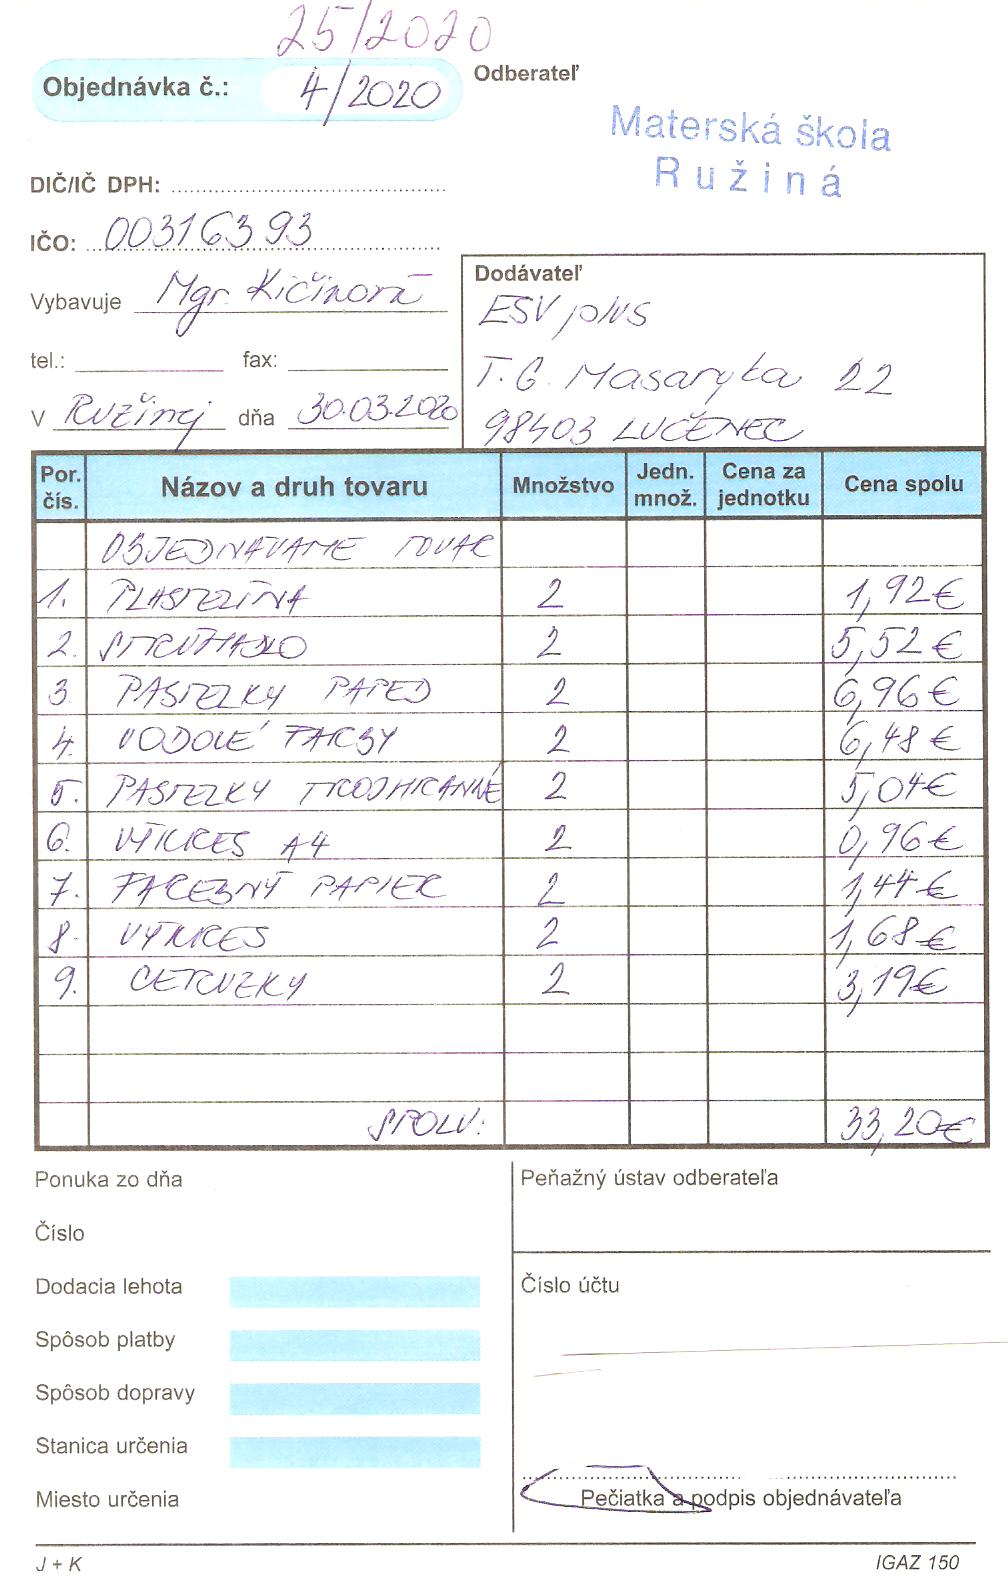 25/2020
Objednávka č.: 4/2020
Odberateľ
Materská škola
Ružiná
DIČ/IČ DPH:
IČO: 00316393
Vybavuje Mgr. Kičinová
tel.: fax:
V Ružinej dňa 30.03.2020
Dodávateľ
ESV plus
T.G. Masaryka 22
98403 LUČENEC
Por. čís. Názov a druh tovaru Množstvo Jedn. množ. Cena za jednotku Cena spolu
OBJEDNÁVAME TOVAR
1. PLASTELÍNA 2 1,92€
2. STRÚHADLO 2 5,52€
3. PASTELKY 2 6,96€
4. VODOVÉ FARBY 2 6,48€
5. PASTELKY TROJHRANNÉ 2 5,04€
6. VÝKRES A4 2 0,96€
7. FAREBNÝ PAPIER 2 1,44€
8. VÝKRES 2 1,68€
9. CERUZKY 2 3,19€
SPOLU: 33,20€
Ponuka zo dňa
Číslo
Dodacia lehota
Spôsob platby
Spôsob dopravy
Stanica určenia
Miesto určenia
Peňažný ústav odberateľa
Číslo účtu
Pečiatka a podpis objednávateľa
J + K
IGAZ 150